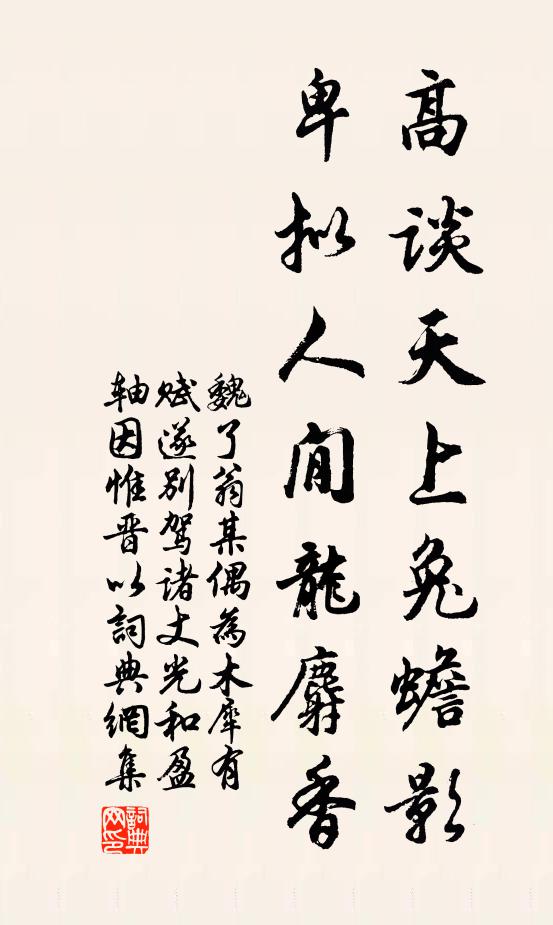 高谈天上兔蟾影
卑拟人间龍麝香
魏了翁某偶為木犀有
赋遂别駕诸丈光和盈
轴因惟晋以詞典網集
詞典网印